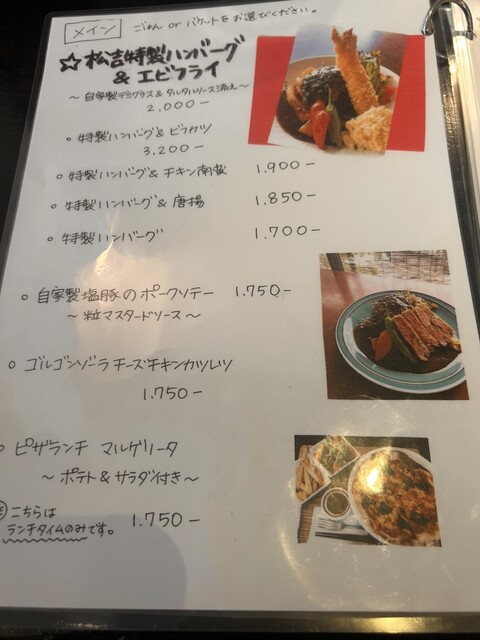 メイン ごはん or バケットをお選びください。
☆松吉特製ハンバーグ
& エビフライ
～自家製デミグラス&タルタルソース添え～
2,000-
○ 特製ハンバーグ&ビフカツ
3,200-
○ 特製ハンバーグ&チキン南蛮 1.900-
○ 特製ハンバーグ&唐揚 1.850-
○ 特製ハンバーグ 1.700-
○ 自家製塩豚のポークソテー 1.750-
～粒マスタードソース～
○ ゴルゴンゾーラチーズチキンカツレツ
1.750-
○ ピザランチ マルゲリータ
～ポテト&サラダ付き～
こちらは
ランチタイムのみです。 1.750-